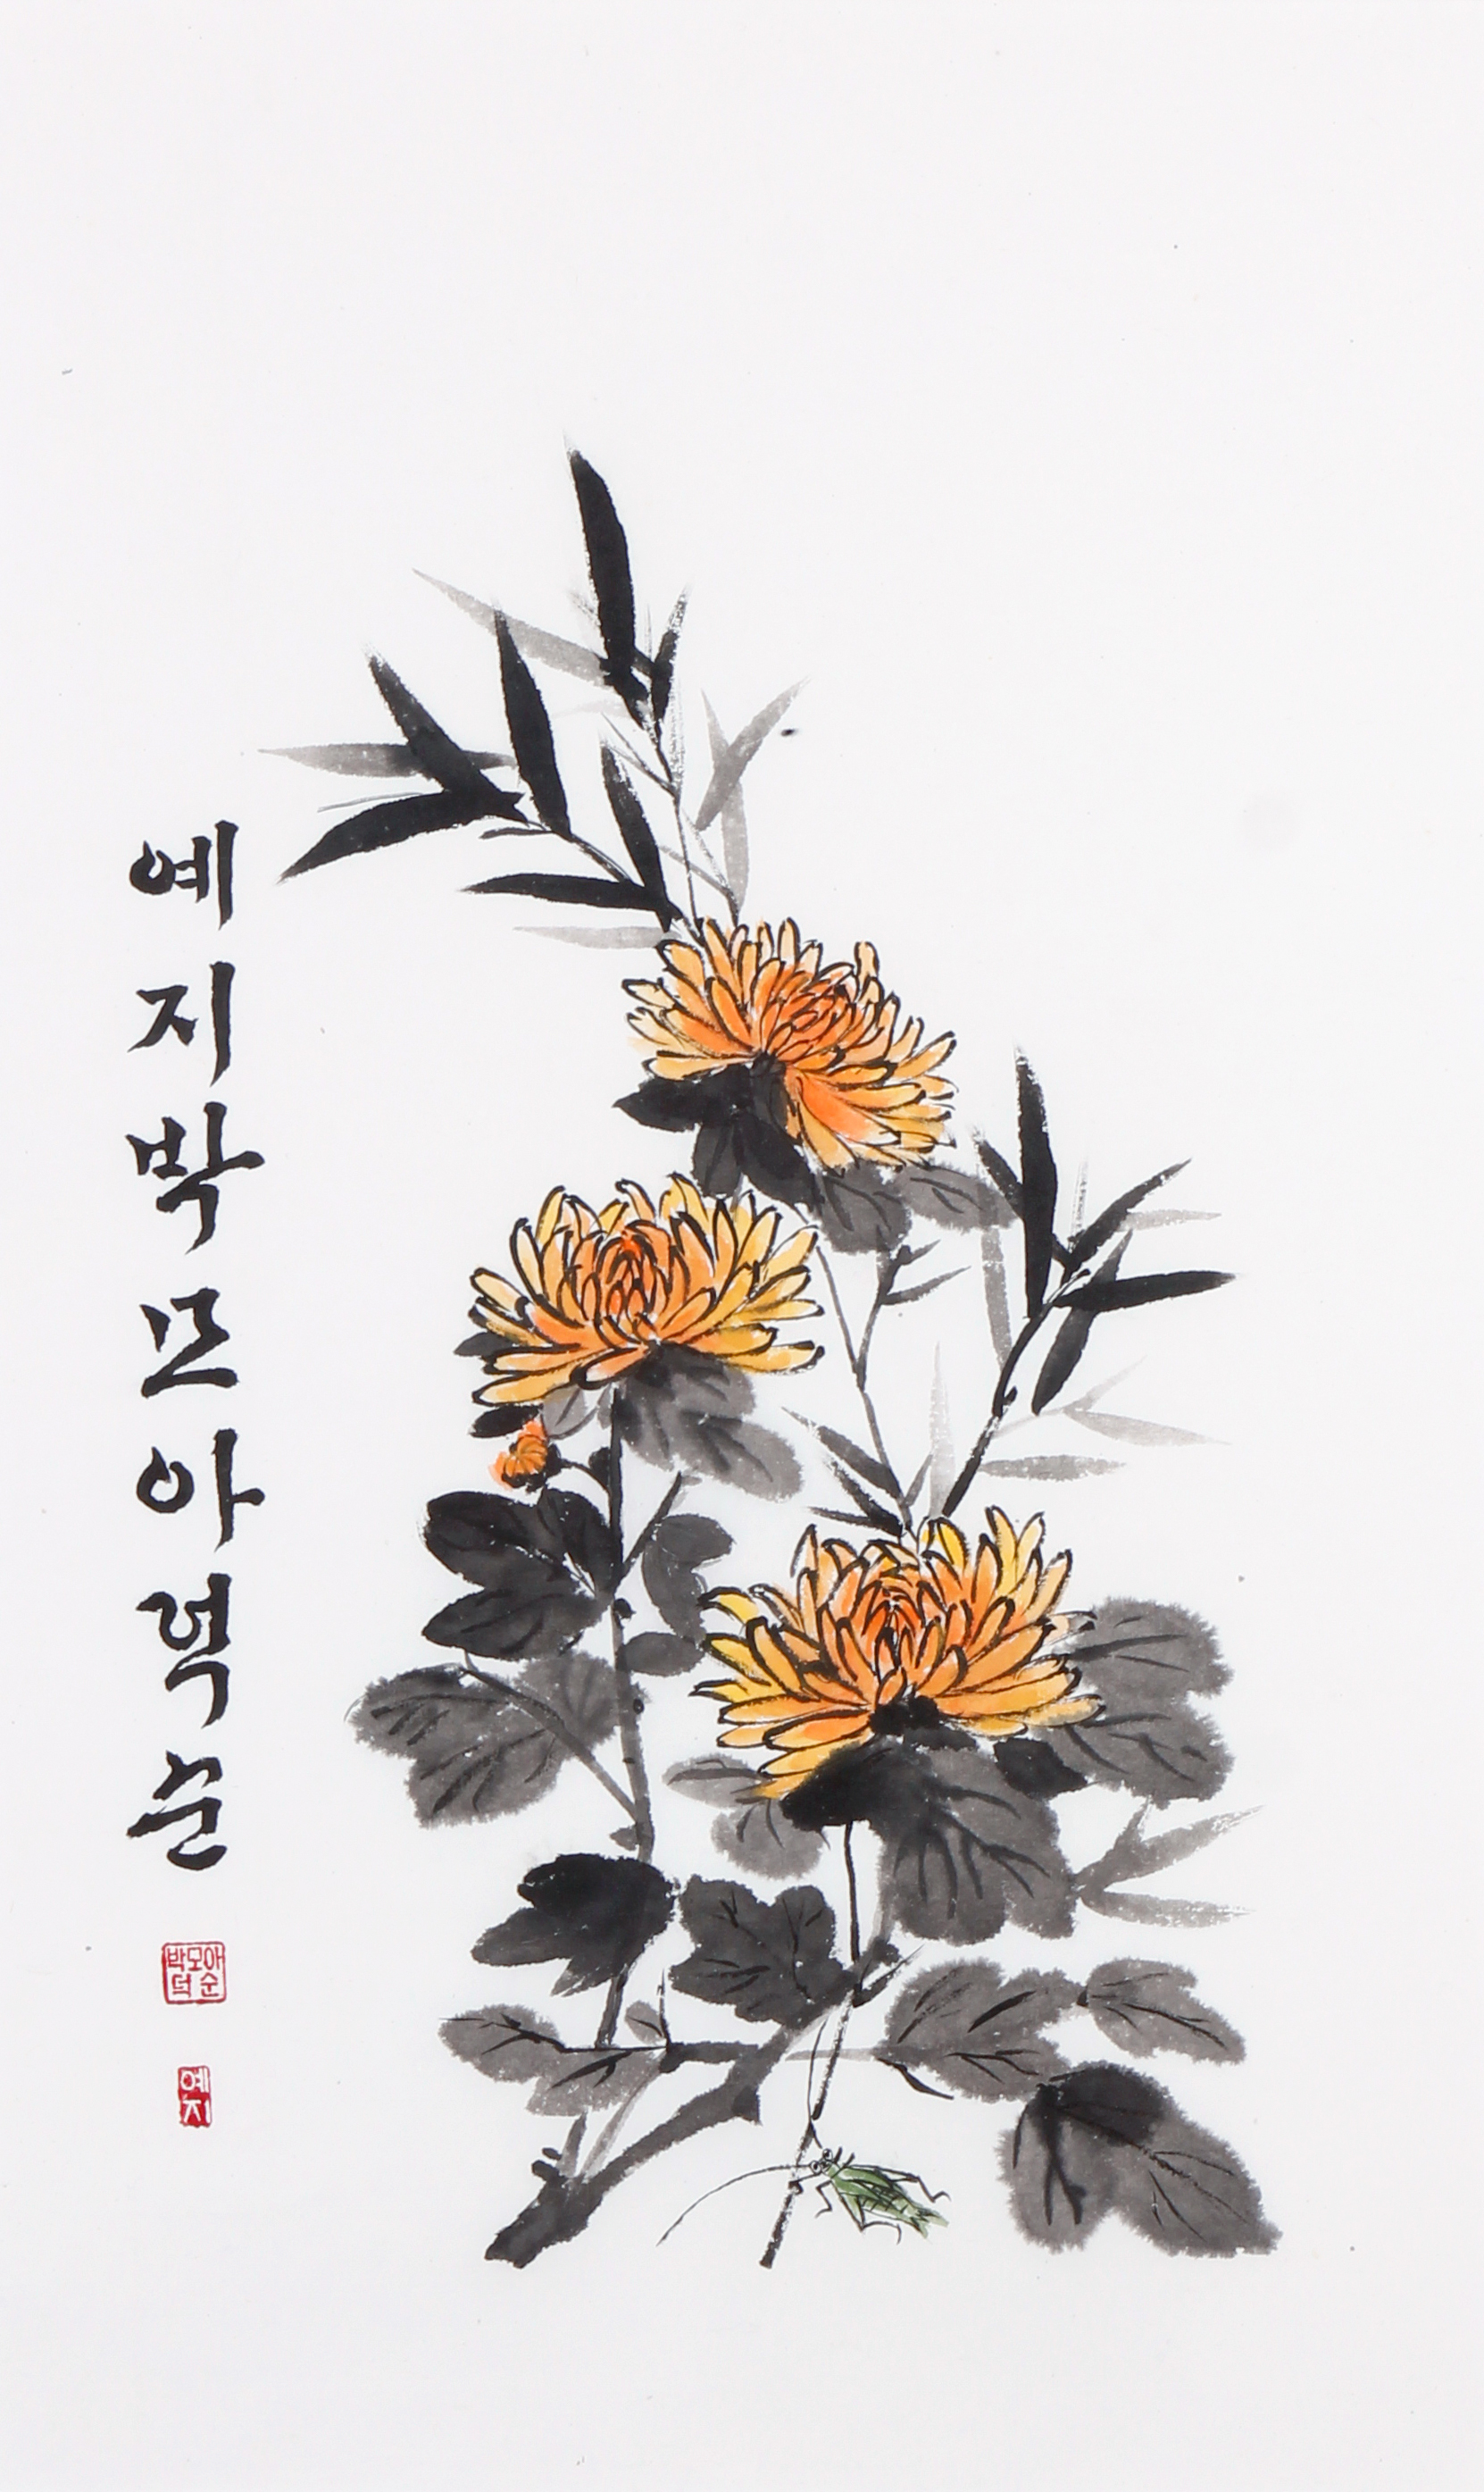 예지박모아덕순
박모아
덕순
예지